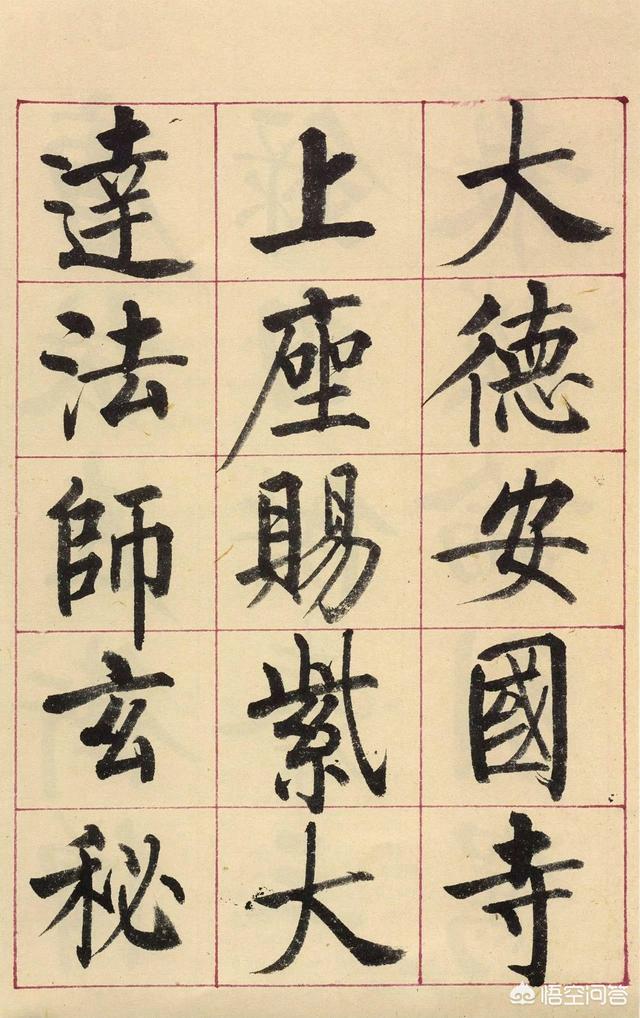 大德安國寺
上座賜紫大
達法師玄秘
悟空问答